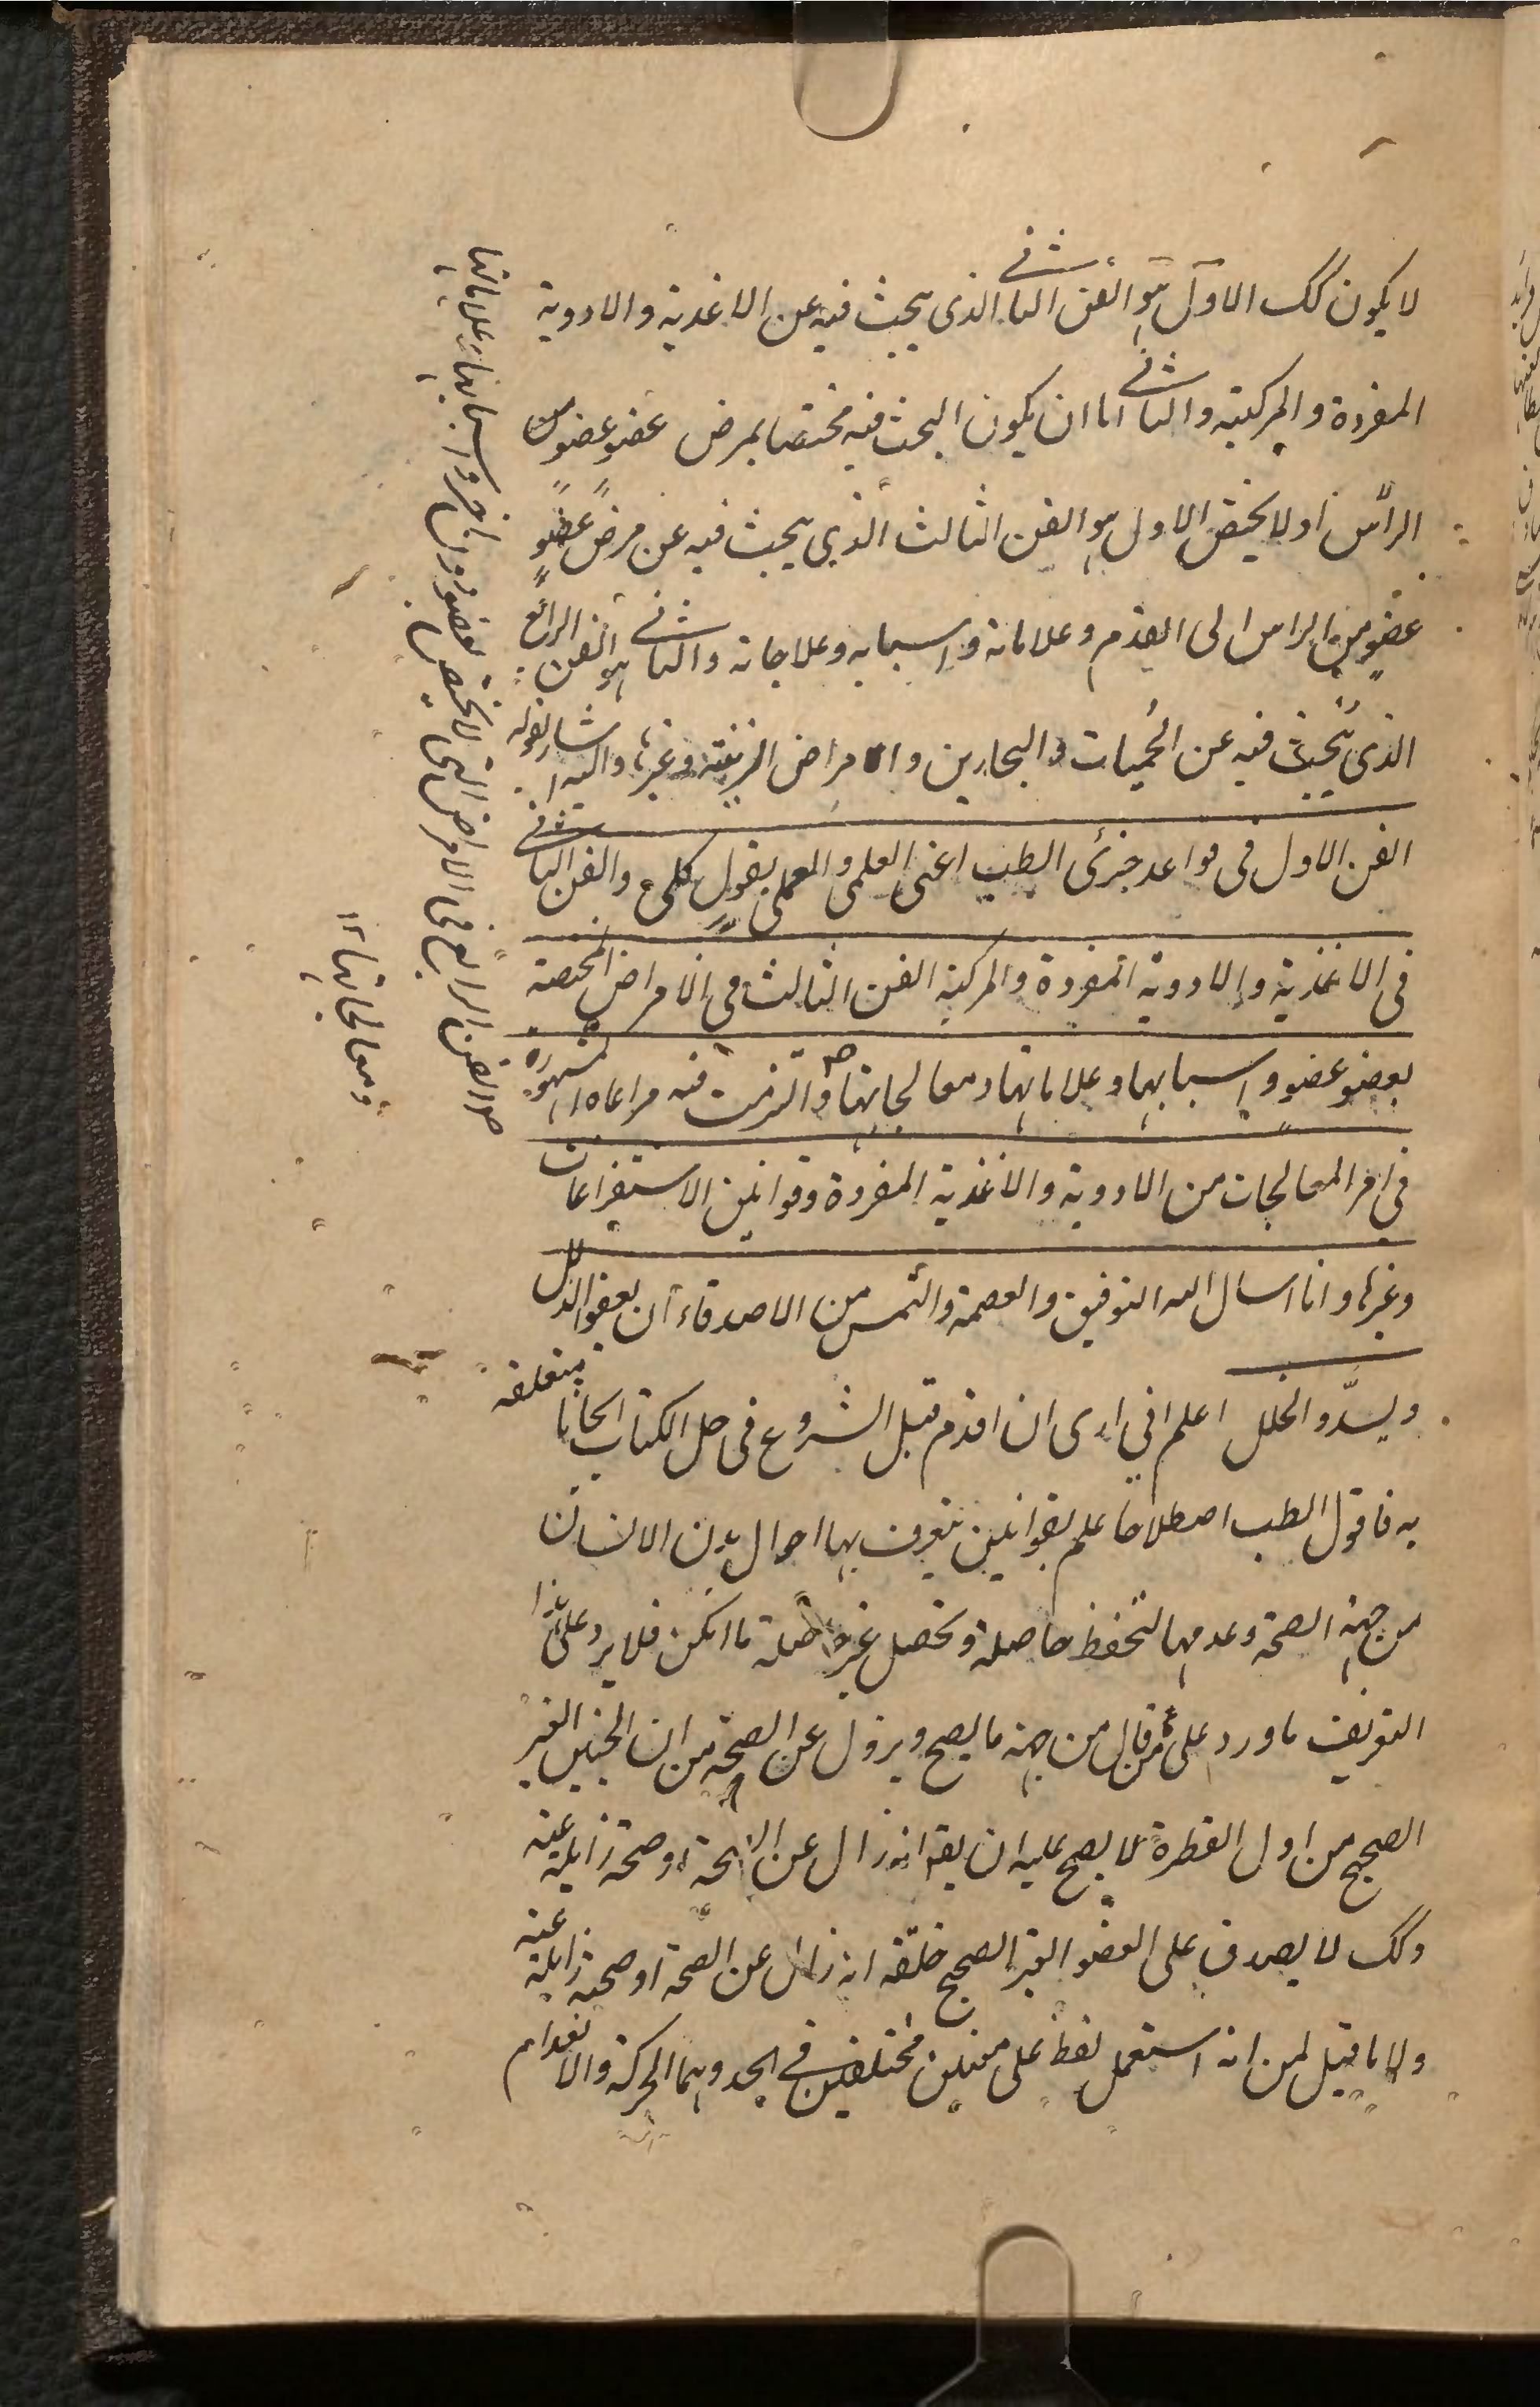 لا يكون كك الاول هو الفن الثانی الذی يبحث فيه عن الاغذية والادوية
المفردة والمركبة والثانی اما ان يكون البحث فيه مختصا بمرض عضو عضو من
الرأس اولا يختص الاول هو الفن الثالث الذي يبحث فيه عن مرض عضو
عضو من الراس الى القدم وعلاماته واسبابه وعلاجاته والثانی هو الفن الرابع
الذى يبحث فيه عن الحميات والبحارين والامراض المزينة وغيرها واليه اشار بقوله
الفن الاول فى قواعد جزئى الطب اعنى العلمى والعملى بقول كلى والفن الثانی
فى الاغذية والادوية المفردة والمركبة الفن الثالث فى الامراض المختصة
بعضو عضو واسبابها وعلاماتها ومعالجاتها صح والتزمت فيه مراعاة المشهور
فى امر المعالجات من الادوية والاغذية المفردة وقوانين الاستفراغات
وغيرها وانا اسال الله التوفيق والعصمة والتمس من الاصدقاء ان يعفو الزلل
ويسدّو الخلل اعلم انى ارى ان اقدم قبل الشروع فى حل الكتاب ابحاثا متعلقه
به فاقول الطب اصطلاحا علم بقوانين يتعرف بها احوال بدن الانسان
من جهة الصحة وعدمها لتحفظ حاصلة وتحصل غير حاصلة ما امكن فلا يرد على هذا
التعريف ما ورد على من قال من جهة ما يصح ويزول عن الصحة من ان الجنين الغير
الصحيح من اول الفطرة لا يصح عليه ان يقه انه زال عن الصحة او صحة زايلة عنه
وكك لا يصدق على العضو الغير الصحيح خلقة انه زال عن الصحة او صحته زايلة عنه
ولا ما قيل لمن انه استعمل لفظ على معنيين مختلفين فى الحد وهما الحركة والانعدام
صح الفن الرابع فى الامراض التى لا تختص بعضو دون اخر واسبابها وعلاماتها
ومعالجاتها ١٢